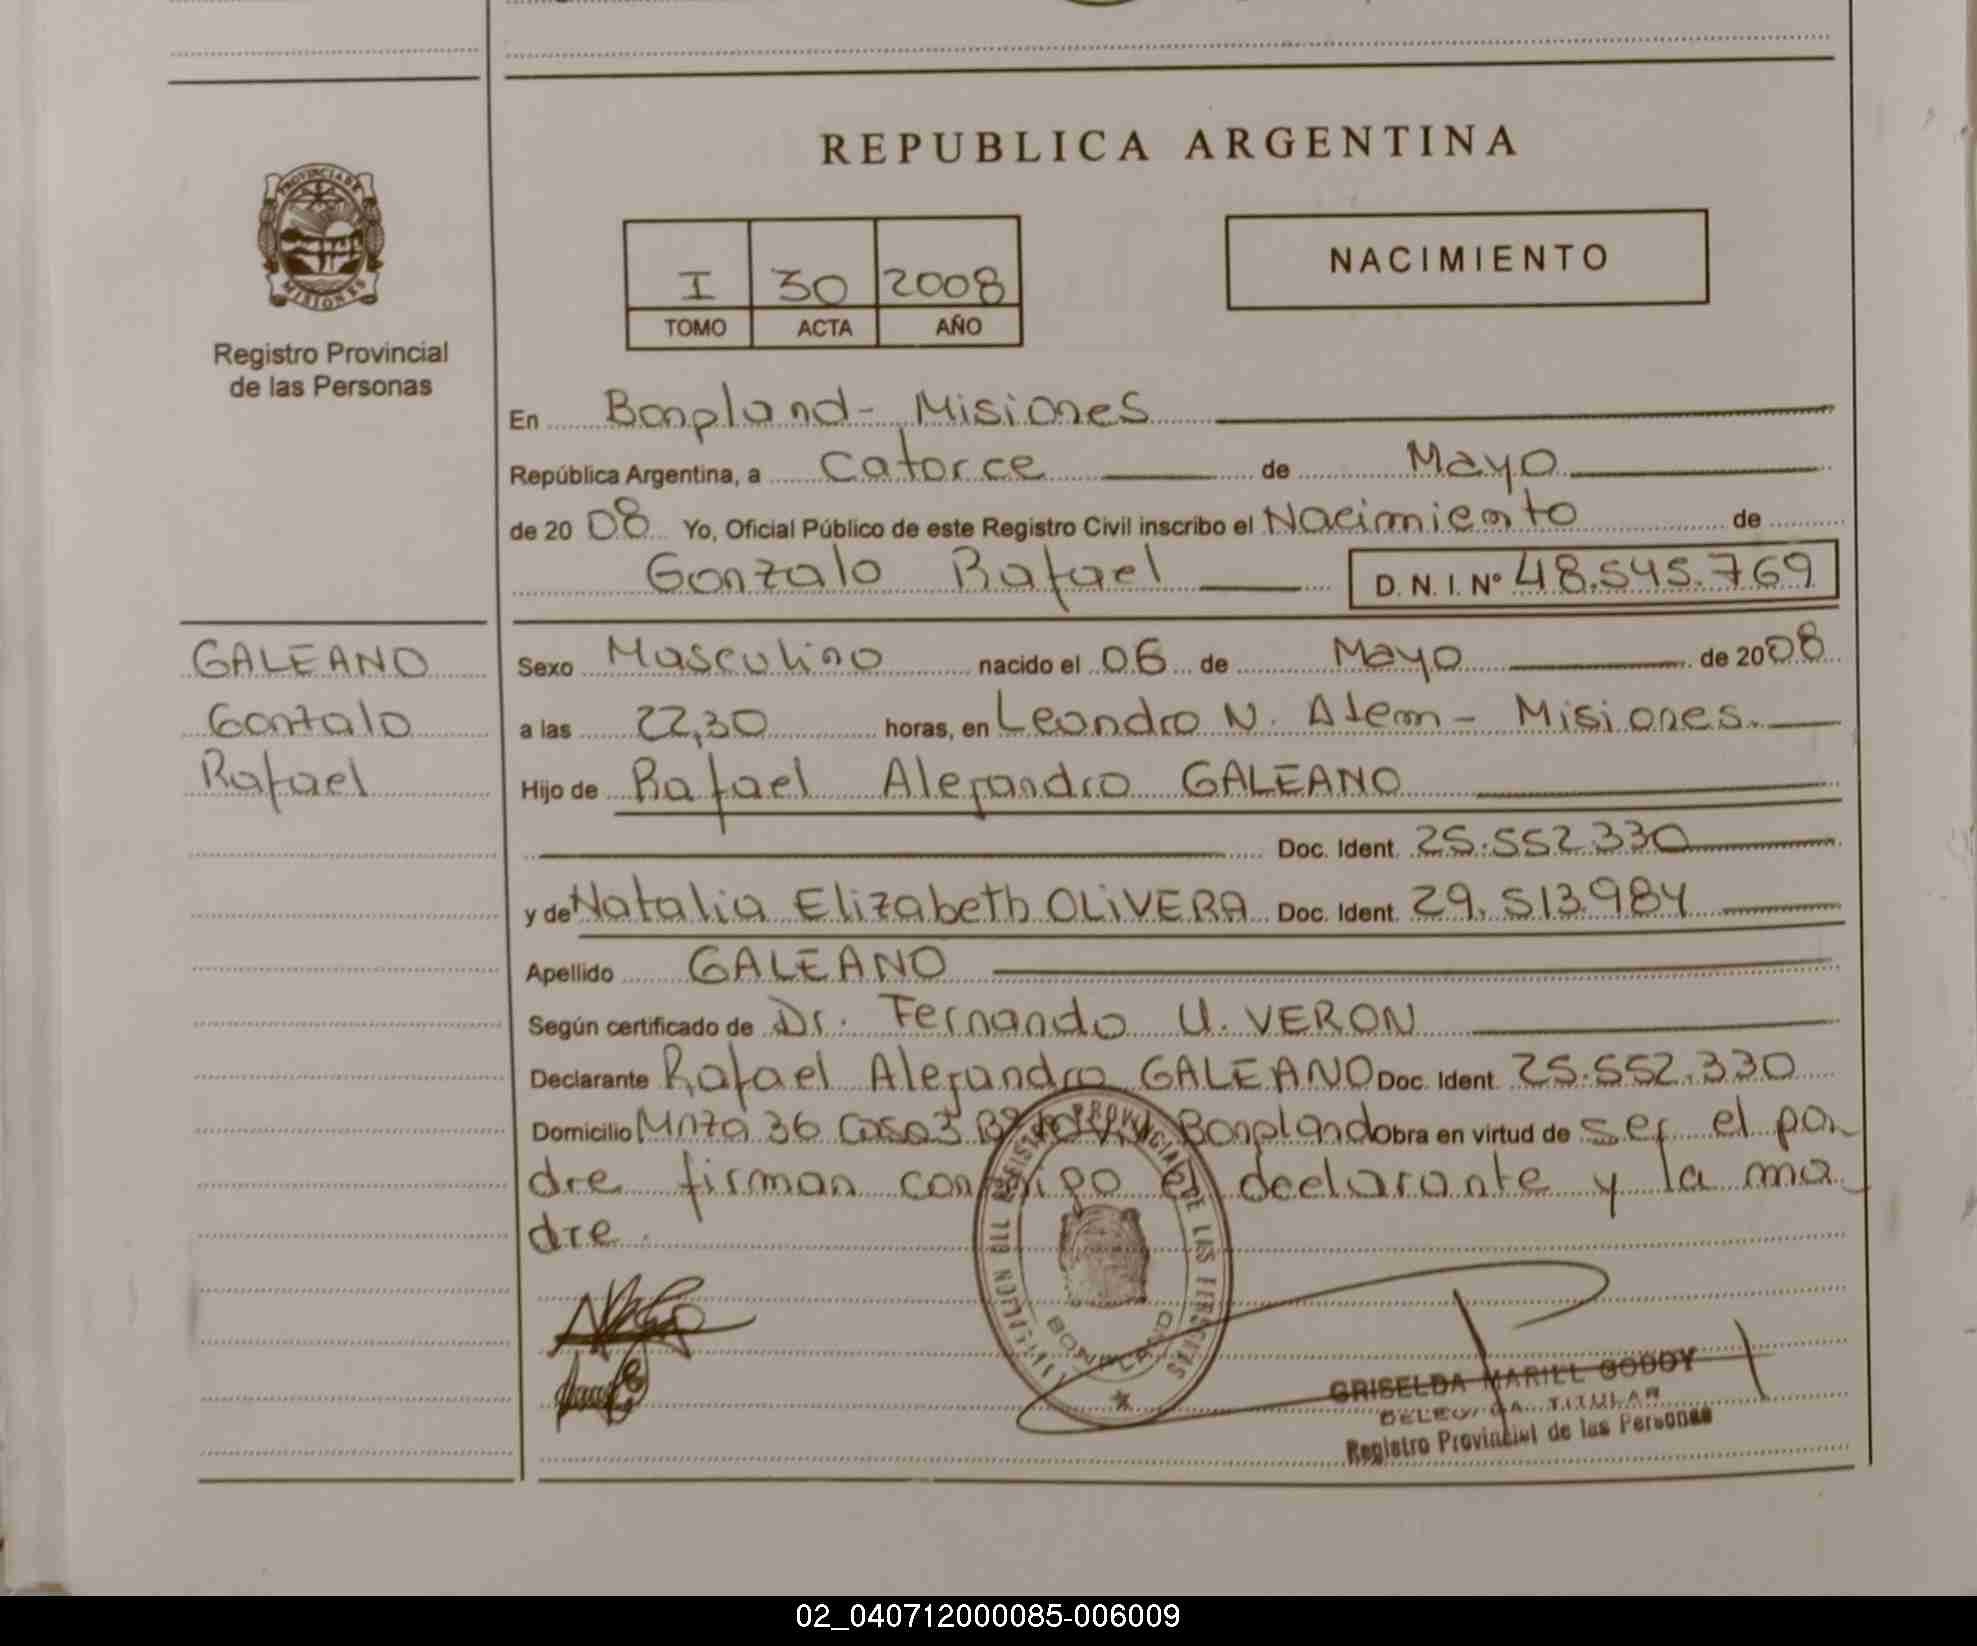 REPUBLICA ARGENTINA
PROVINCIA DE
MISIONES
Registro Provincial
de las Personas
I 30 2008
TOMO ACTA AÑO
NACIMIENTO
En Bonpland - Misiones
República Argentina, a Catorce de Mayo
de 20 08 Yo, Oficial Público de este Registro Civil inscribo el Nacimiento de
Gonzalo Rafael D. N. I. Nº 48.545.769
GALEANO
Gonzalo
Rafael
Sexo Masculino nacido el 06 de Mayo de 2008
a las 22,30 horas, en Leandro N. Alem - Misiones.
Hijo de Rafael Alejandro GALEANO
Doc. Ident. 25.552.330
y de Natalia Elizabeth OLIVERA Doc. Ident. 29.513.984
Apellido GALEANO
Según certificado de Dr. Fernando U. VERON
Declarante Rafael Alejandro GALEANO Doc. Ident. 25.552.330
Domicilio Mnza 36 Casa 3 Bonpland obra en virtud de ser el pa-
dre firman conmigo el declarante y la ma-
dre.
PROVINCIAL DE LAS
BONPLAND
GRISELDA MARILL GODOY
DELEGADA TITULAR
Registro Provincial de las Personas
02_040712000085-006009